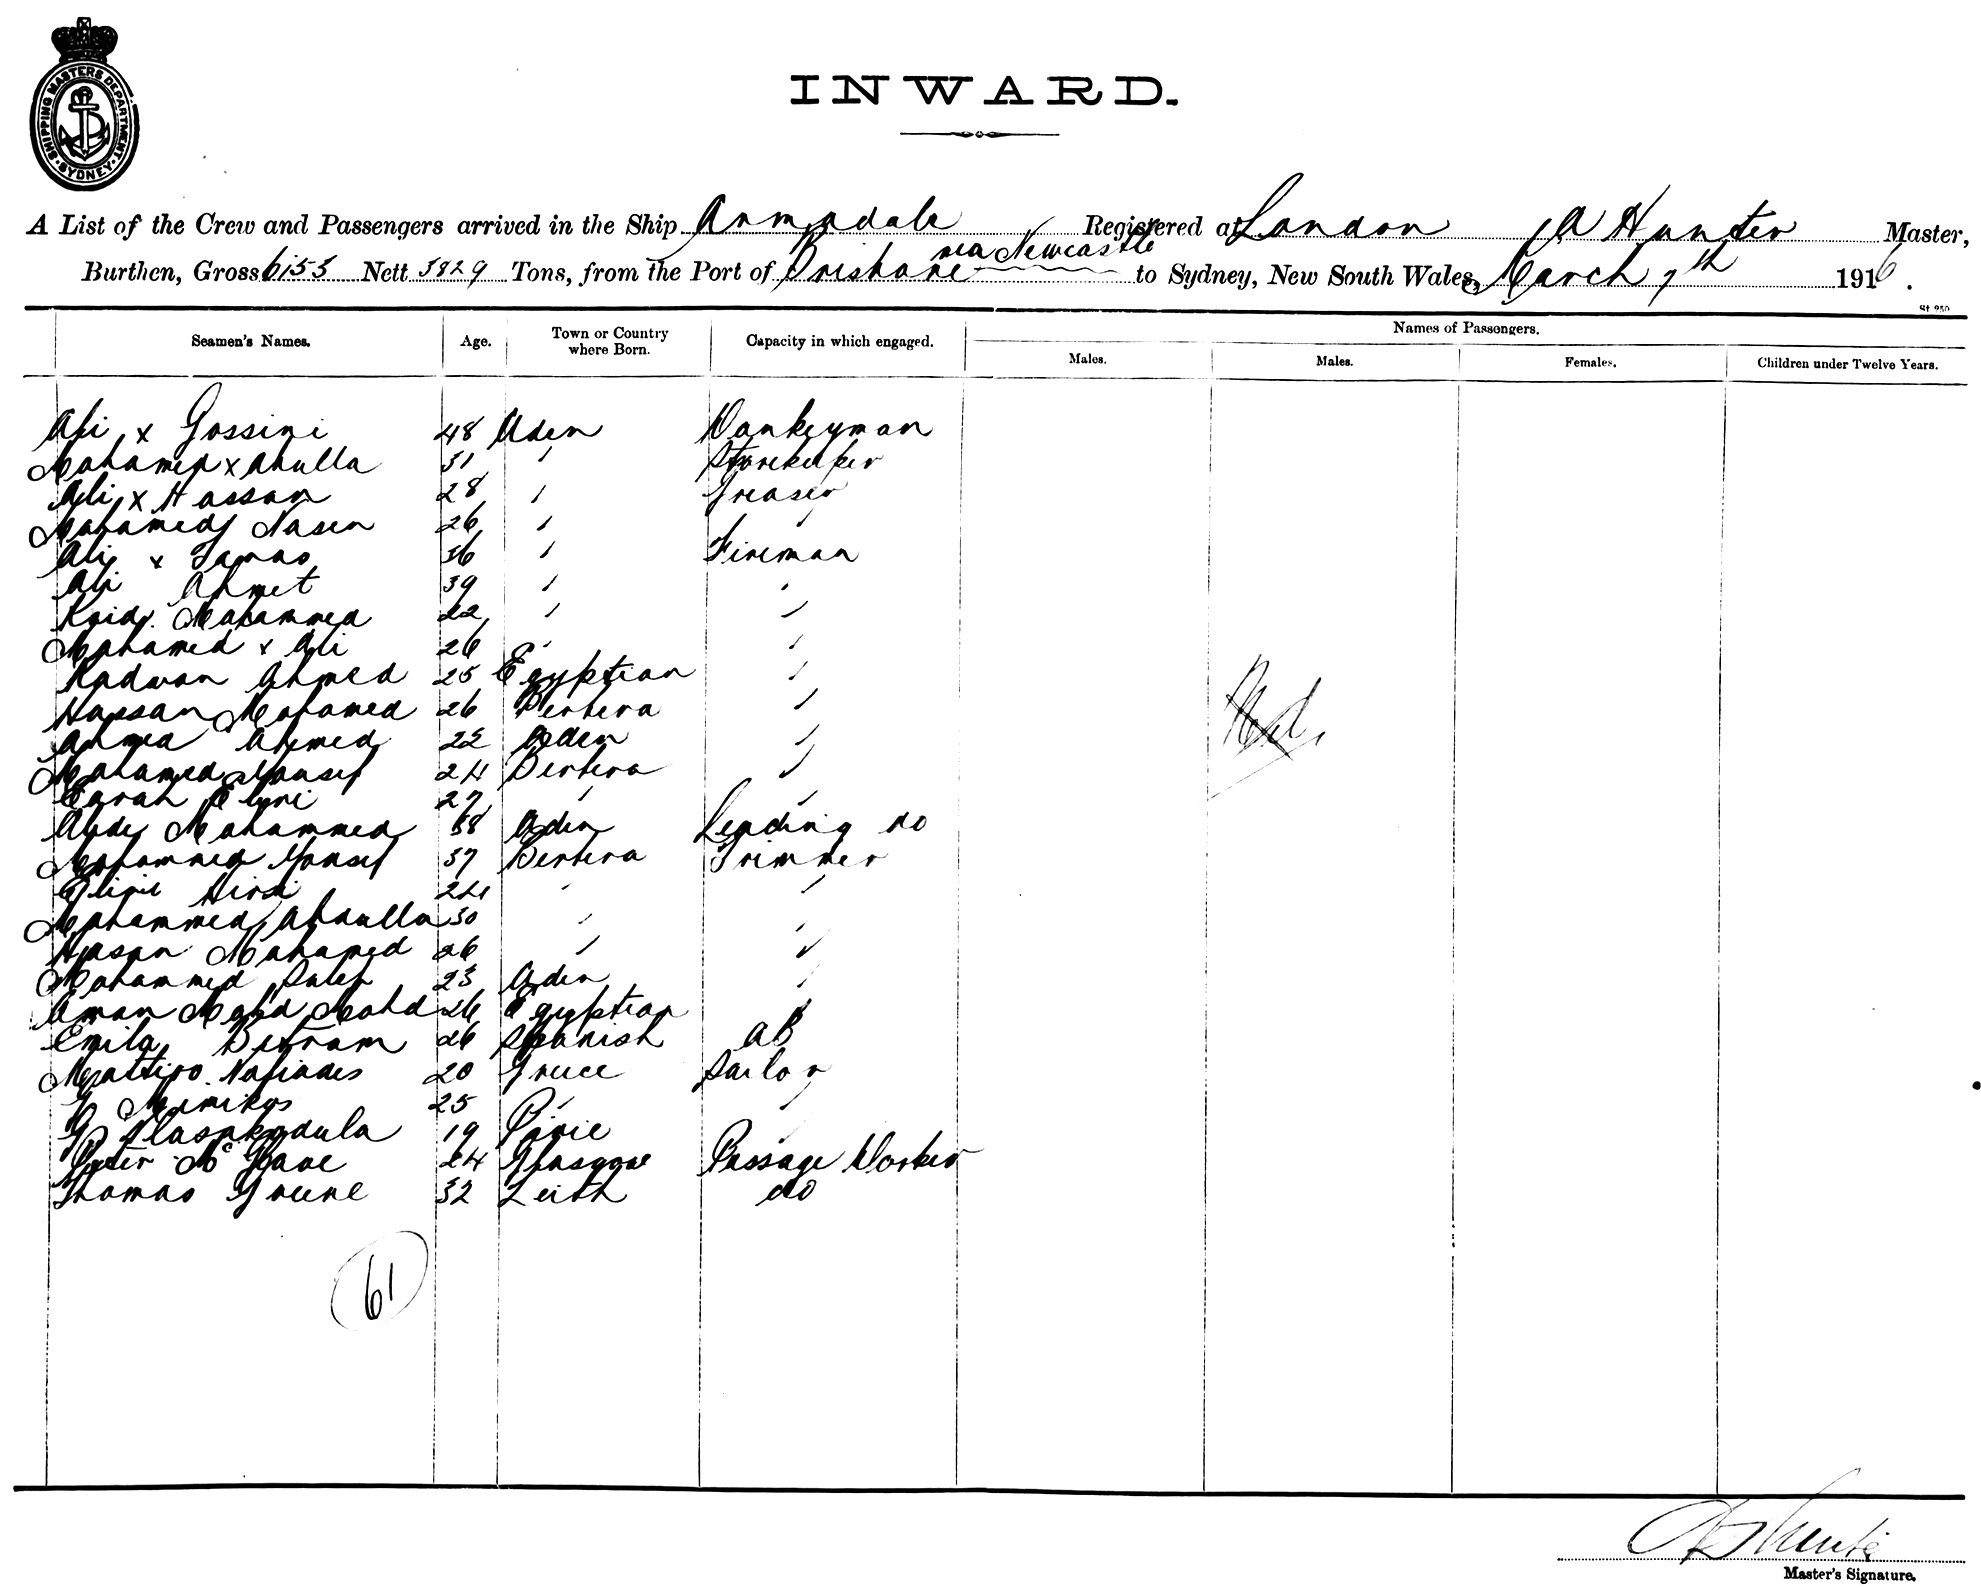 SHIPPING MASTERS DEPARTMENT
SYDNEY
INWARD.
A List of the Crew and Passengers arrived in the Ship Armadale Registered at London A Hunter Master,
Burthen, Gross 6153 Nett 3829 Tons, from the Port of Brisbane via Newcastle to Sydney, New South Wales, March 7th 1916.
St 250
Seamen's Names. Age. Town or Country where Born. Capacity in which engaged. Names of Passengers.
Males. Males. Females. Children under Twelve Years.
Ali x Gossini 48 Aden Donkeyman
Mohamed x Abulla 31 " Storekeeper
Ali x Hassan 28 " Greaser
Mohamed Nasen 26 " "
Ali x 36 " Fireman
Ali Ahmet 39 " "
Kaid Mohammed 22 " "
Mohamed x Ali 26 " "
Radwan Ahmed 25 Egyptian "
Hassan Mohamed 26 Berbera "
Ahmed Ahmed 22 Aden "
Mohamed Yousef 24 Berbera "
Egrah Elmi 27 " "
Abdy Mohammed 38 Aden Leading do
Mohammed Yousef 37 Berbera Trimmer
Hirsi 24 " "
Mohammed Abdulla 30 " "
Hasan Mohamed 26 " "
Mohammed Saleh 23 Aden "
Aman Mohd Mohd 26 Egyptian "
Emila Bertram 26 Spanish AB
Nafiades 20 Greece Sailor
G Mimikos 25 " "
G 19 Pirie "
Peter Mc Kave 24 Glasgow Passage Worker
Thomas Greene 32 Leith do
Nil
61
A Hunter
Master's Signature.